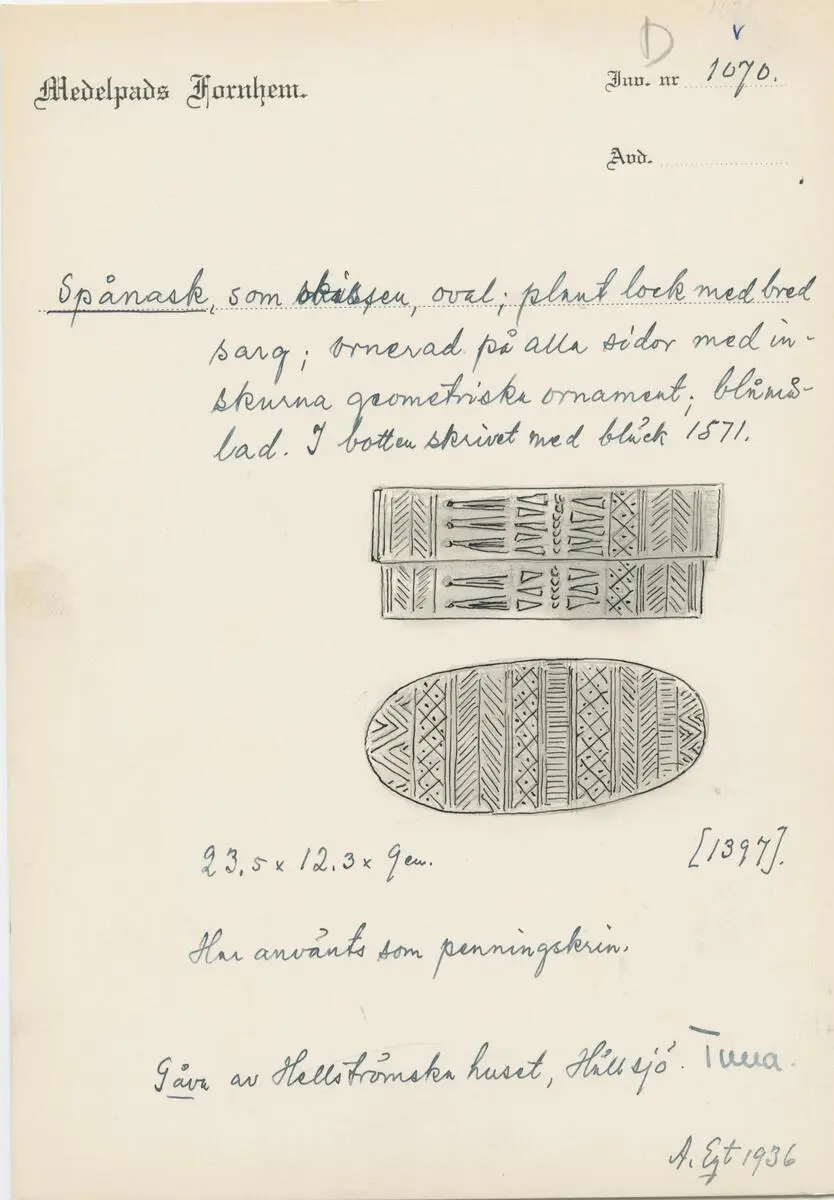 D
v
Medelpads Fornhem.
Inv. nr 1070.
Avd.
Spånask, som skissen, oval; plant lock med bred
sarg; ornerad på alla sidor med in-
skurna geometriska ornament; blåmå-
lad. I botten skrivet med bläck 1571.
23.5 x 12.3 x 9 cm.
[1397].
Har använts som penningskrin.
Gåva av Hellströmska huset, Hällsjö. Tuna.
A. Egt 1936